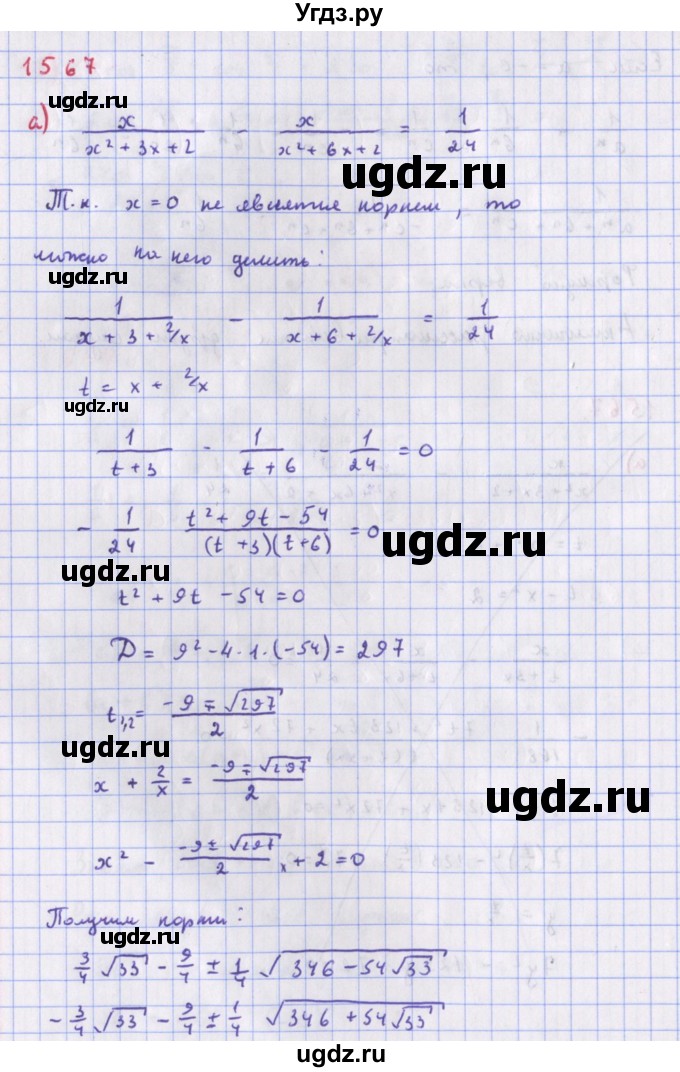 Угдз.ру
1567
ugdz.ru
а) x/(x² + 3x + 2) − x/(x² + 6x + 2) = 1/24
ugdz.ru
Т.к. x = 0 не является корнем, то
можно на него делить:
ugdz.ru
1/(x + 3 + 2/x) − 1/(x + 6 + 2/x) = 1/24
t = x + 2/x
ugdz.ru
1/(t + 3) − 1/(t + 6) − 1/24 = 0
− 1/24 (t² + 9t − 54)/((t + 3)(t + 6)) = 0
ugdz.ru
ugdz.ru
t² + 9t − 54 = 0
D = 9² − 4 · 1 · (−54) = 297
t₁,₂ = (−9 ∓ √297)/2
ugdz.ru
x + 2/x = (−9 ∓ √297)/2
ugdz.ru
x² − (−9 ± √297)/2 x + 2 = 0
Получим корни:
ugdz.ru
3/4 √33 − 9/4 ± 1/4 √(346 − 54√33)
− 3/4 √33 − 9/4 ± 1/4 √(346 + 54√33)
ugdz.ru